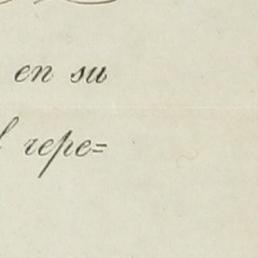 en su
repe=